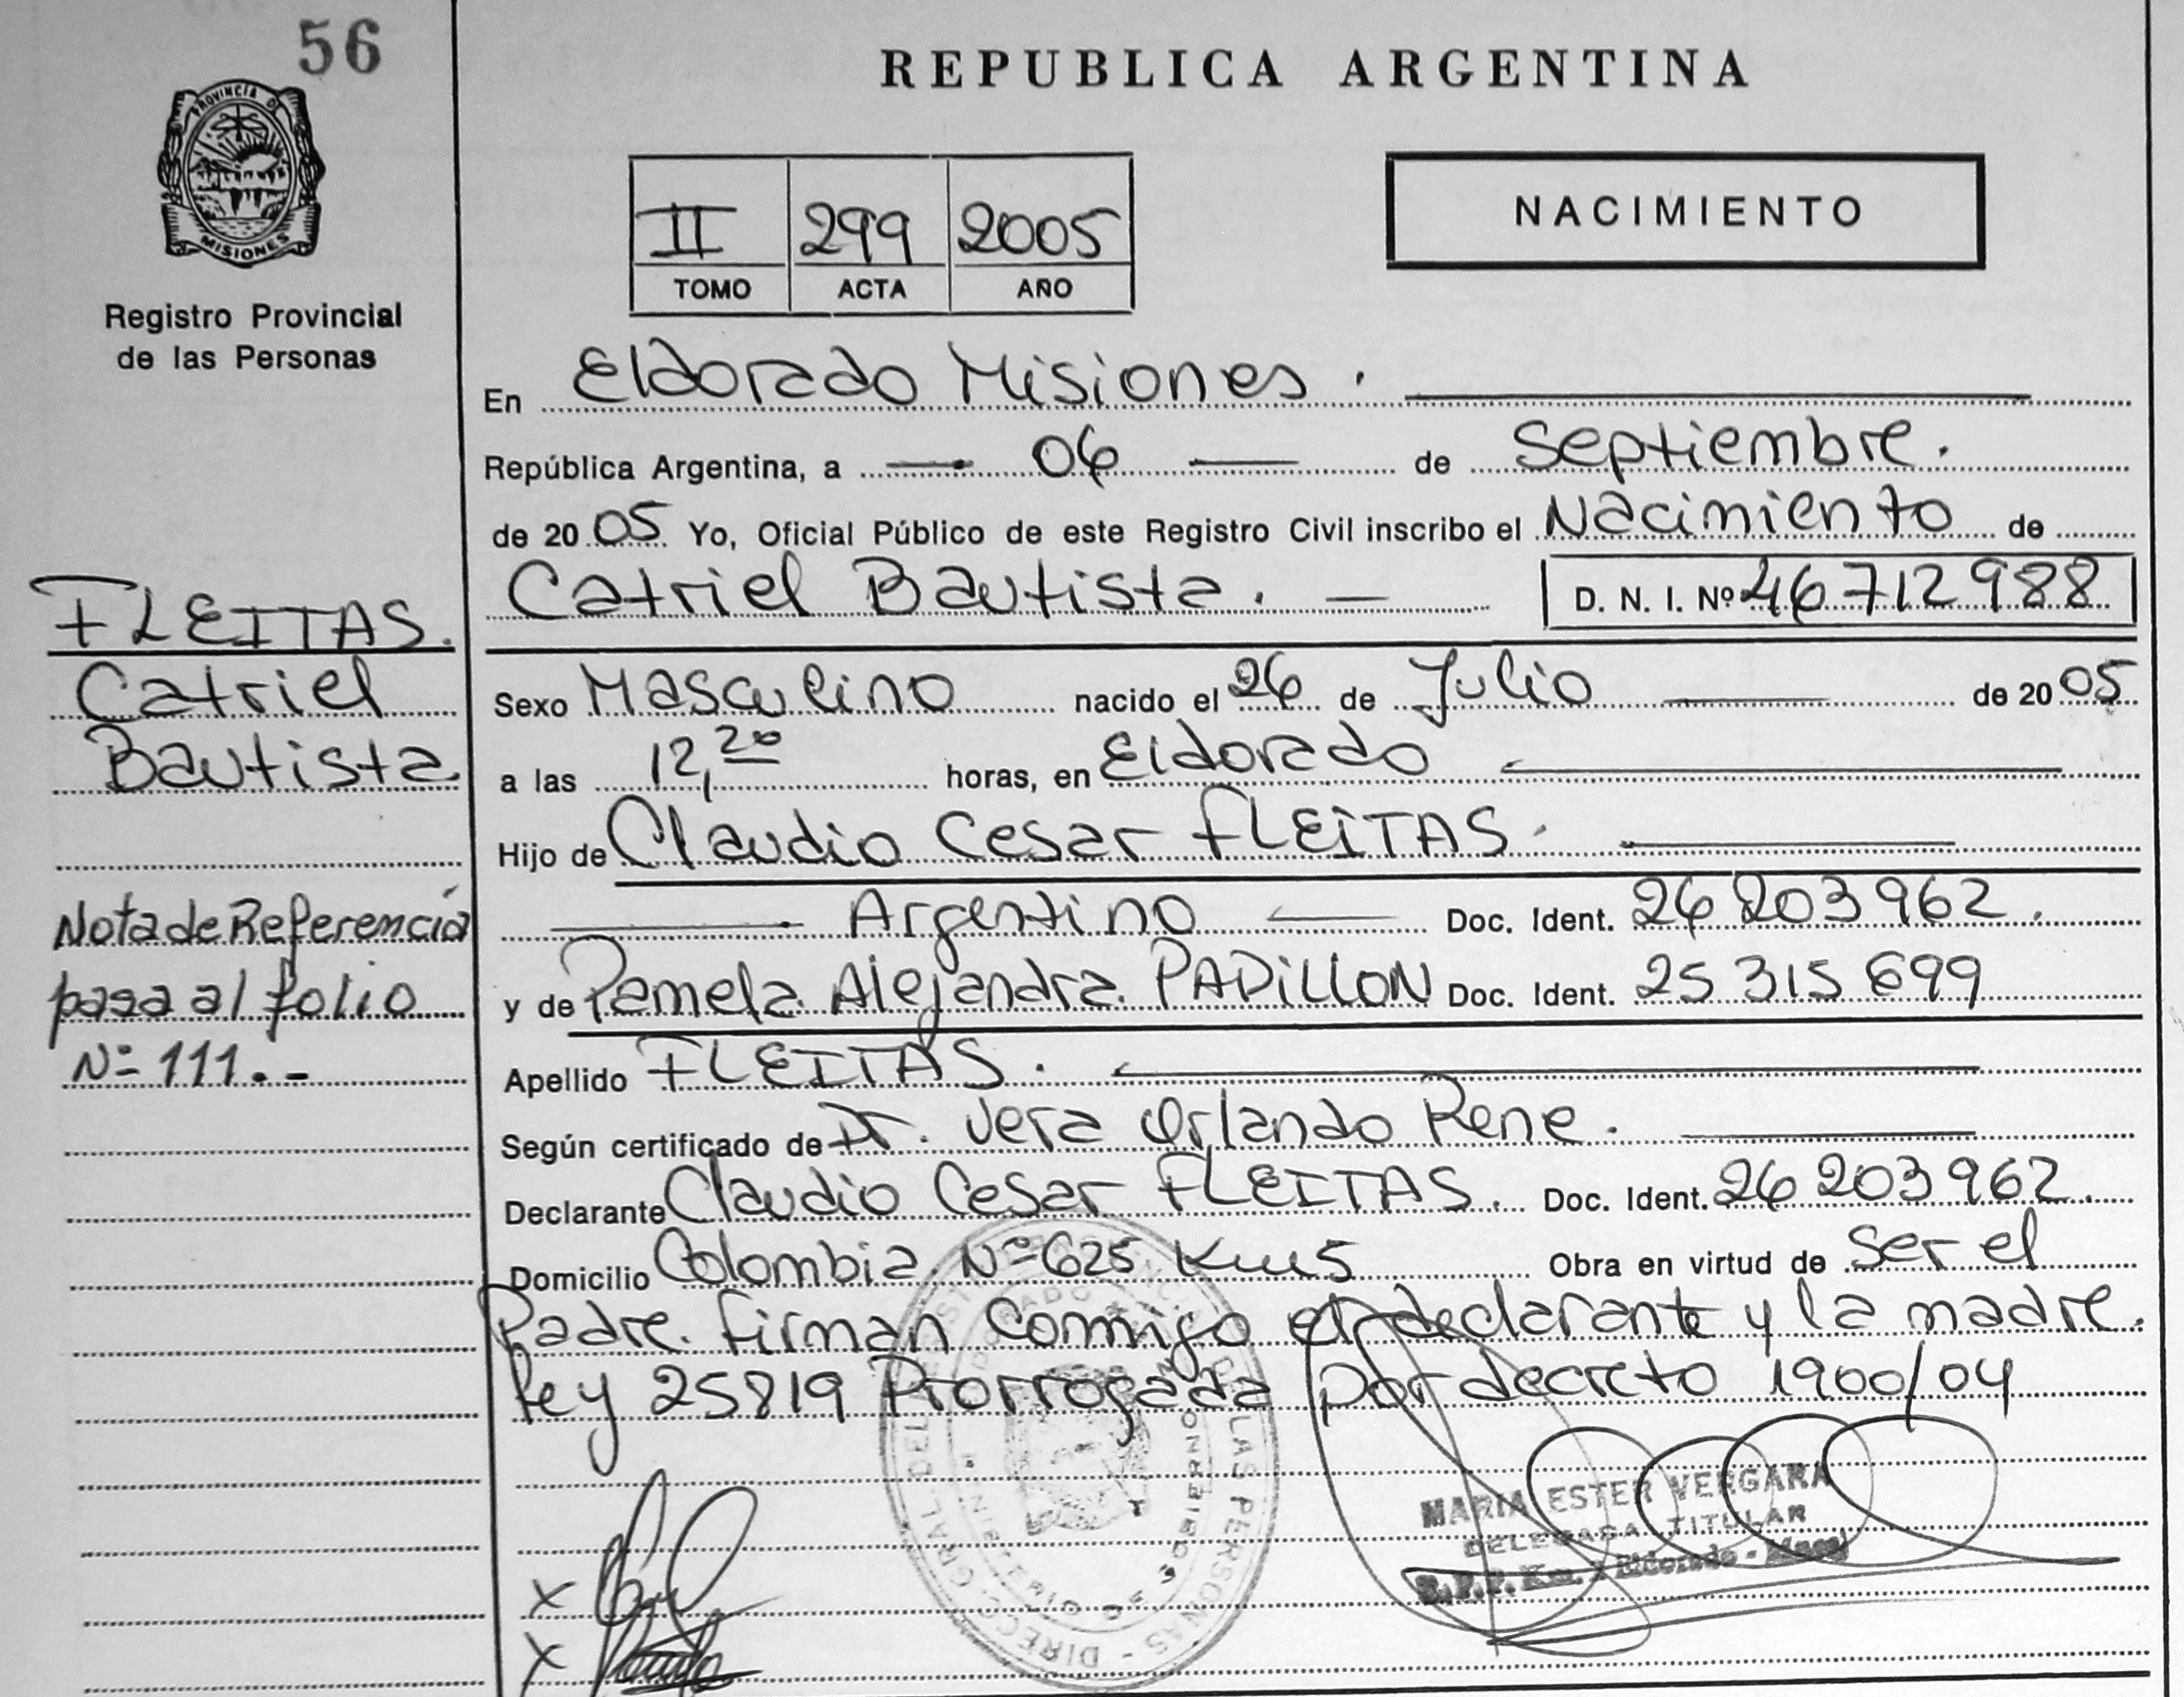 56
PROVINCIA DE
MISIONES
Registro Provincial
de las Personas
REPUBLICA ARGENTINA
II 299 2005
TOMO ACTA AÑO
NACIMIENTO
En Eldorado Misiones.
República Argentina, a 06 de Septiembre.
de 2005 Yo, Oficial Público de este Registro Civil inscribo el Nacimiento de
Catriel Bautista. D. N. I. Nº 46712988
FLEITAS.
Catriel
Bautista
Sexo Masculino nacido el 26 de Julio de 2005
a las 12,20 horas, en Eldorado
Hijo de Claudio Cesar FLEITAS.
Argentino Doc. Ident. 26 203 962.
y de Pamela Alejandra PADILLON Doc. Ident. 25 315 699
Nota de Referencia
pasa al folio
Nº 111.-
Apellido FLEITAS.
Según certificado de Dr. Vera Orlando Rene.
Declarante Claudio Cesar FLEITAS. Doc. Ident. 26 203 962.
Domicilio Colombia Nº 625 Km 5 Obra en virtud de Ser el
Padre. firman conmigo el declarante y la madre.
Ley 25819 Prorrogada por decreto 1900/04
MARIA ESTER VERGARA
DELEGADA TITULAR
DE LAS PERSONAS - DIRECC. GRAL. DEL
X
X